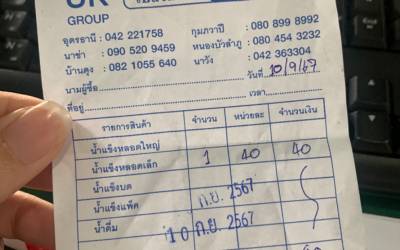 GROUP
อุดรธานี : 042 221758 กุมภวาปี : 080 899 8992
นาข่า : 090 520 9459 หนองบัวลำภู : 080 454 3232
บ้านดุง : 082 1055 640 นาวัง : 042 363304
นามผู้ซื้อ วันที่ 10/9/67
ที่อยู่ เวลา
รายการสินค้า จำนวน หน่วยละ จำนวนเงิน
น้ำแข็งหลอดใหญ่
น้ำแข็งหลอดเล็ก 1 40 40
น้ำแข็งบด
น้ำแข็งแพ็ค ก.ย. 2567
น้ำดื่ม 10 ก.ย. 2567